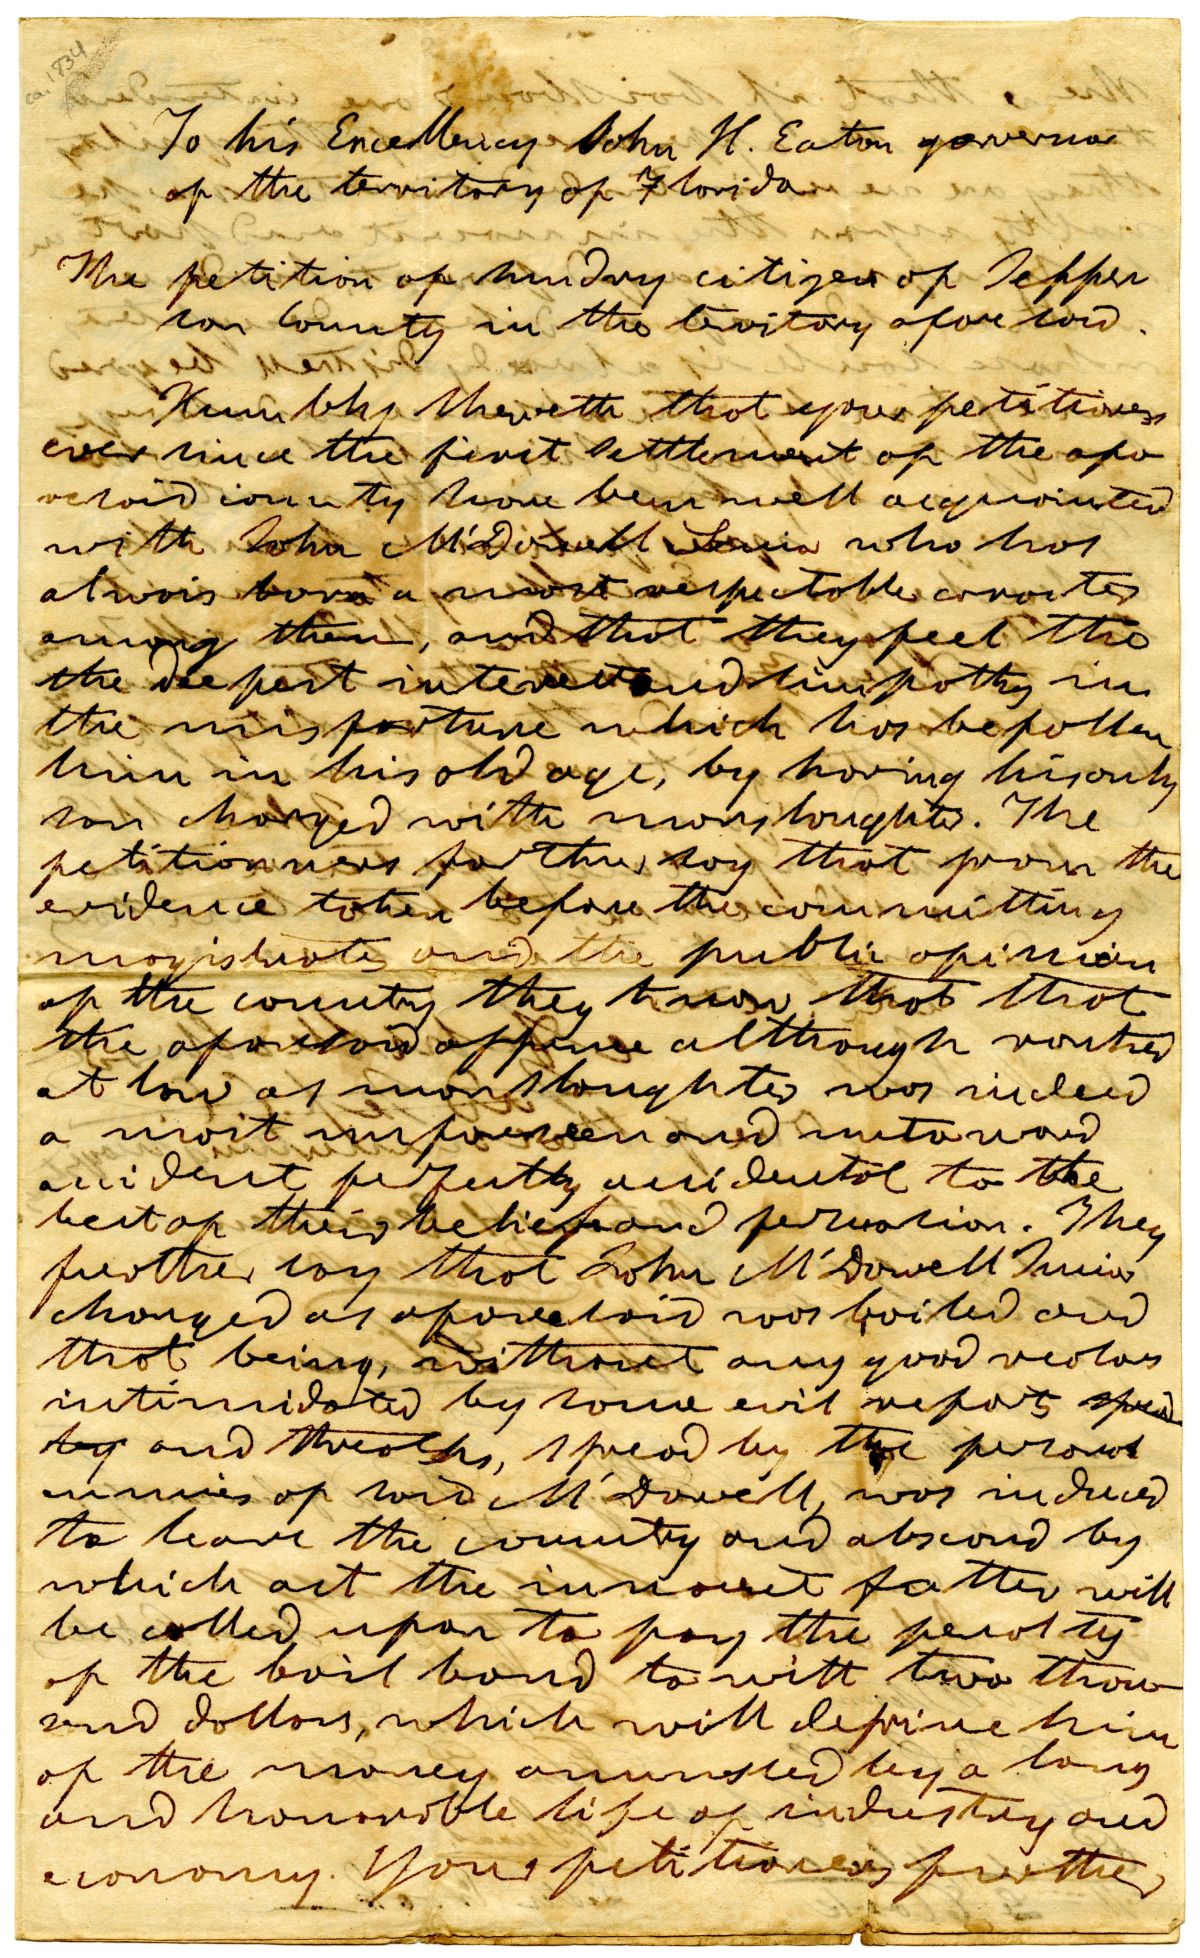 ca. 1834
To his Excellency John H. Eaton governor
of the territory of Florida
The petition of sundry citizens of Jeffer
son County in the territory afore said.
Humbly sheweth that your petitioners
ever since the first settlement of the afo
resaid county have been well acquainted
with John McDowell Senior who has
alwais born a most respectable caracter
among them, and that they feel the
the deepest interest and simpathy in
the misfortune which has befallen
him in his old age, by having his only
son charged with manslaughter. The
petitionners farther say that from the
evidence taken before the committing
magistrate and the public opinion
of the country they know that that
the aforesaid offence although ranked
at law as manslaughter was indeed
a most unforeseen and untoward
accident perfectly accidental to the
best of their belief and persuasion. They
further say that John McDowell Junior
charged as aforesaid was bailed and
that being, without any good reasons
intimidated by some evil reports spread
by and threats, spread by the personal
ennmies of said McDowell, was induced
to leave the country and abscond by
which act the innocent father will
be called upon to pay the penalty
of the bail bond to witt two thou
sand dollars, which will deprive him
of the money ammassed by a long
and honorable life of industry and
economy. Your petitioners further